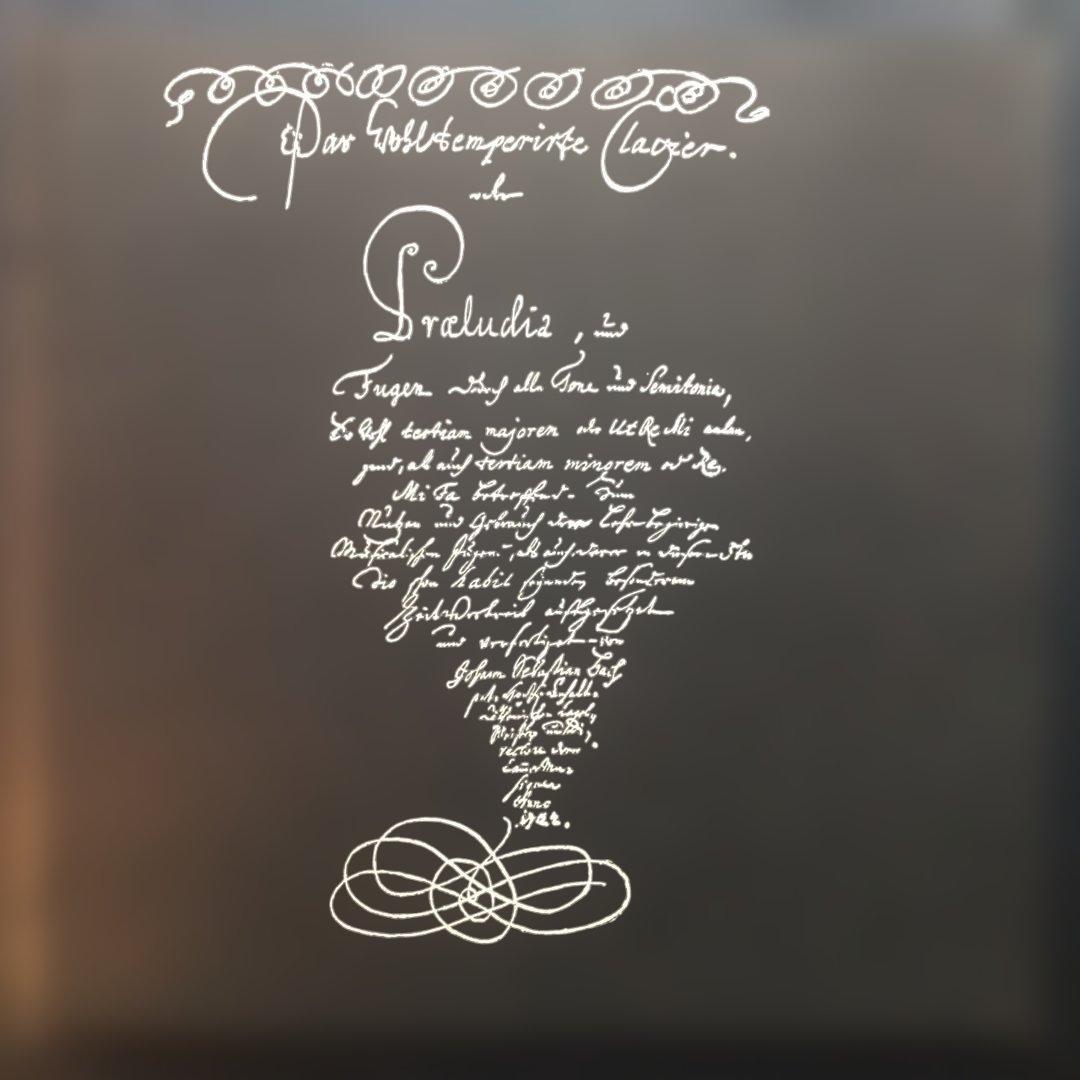 Das Wohltemperirte Clavier.
oder
Præludia, und
Fugen durch alle Tone und Semitonia,
So wohl tertiam majorem oder Ut Re Mi anlan,
gend, als auch tertiam minorem oder Re
Mi Fa betreffend. Zum
Nutzen und Gebrauch der Lehrbegierigen
Musicalischen Jugend, als auch derer in diesem stu
dio schon habil seyenden besonderem
Zeitvertreib auffgesetzet
und verfertiget von
Johann Sebastian Bach
p. t. Hochfürstl.
Capel
Meister und Di,
rectore derer
Cammer Mu
siquen
Anno
1722.